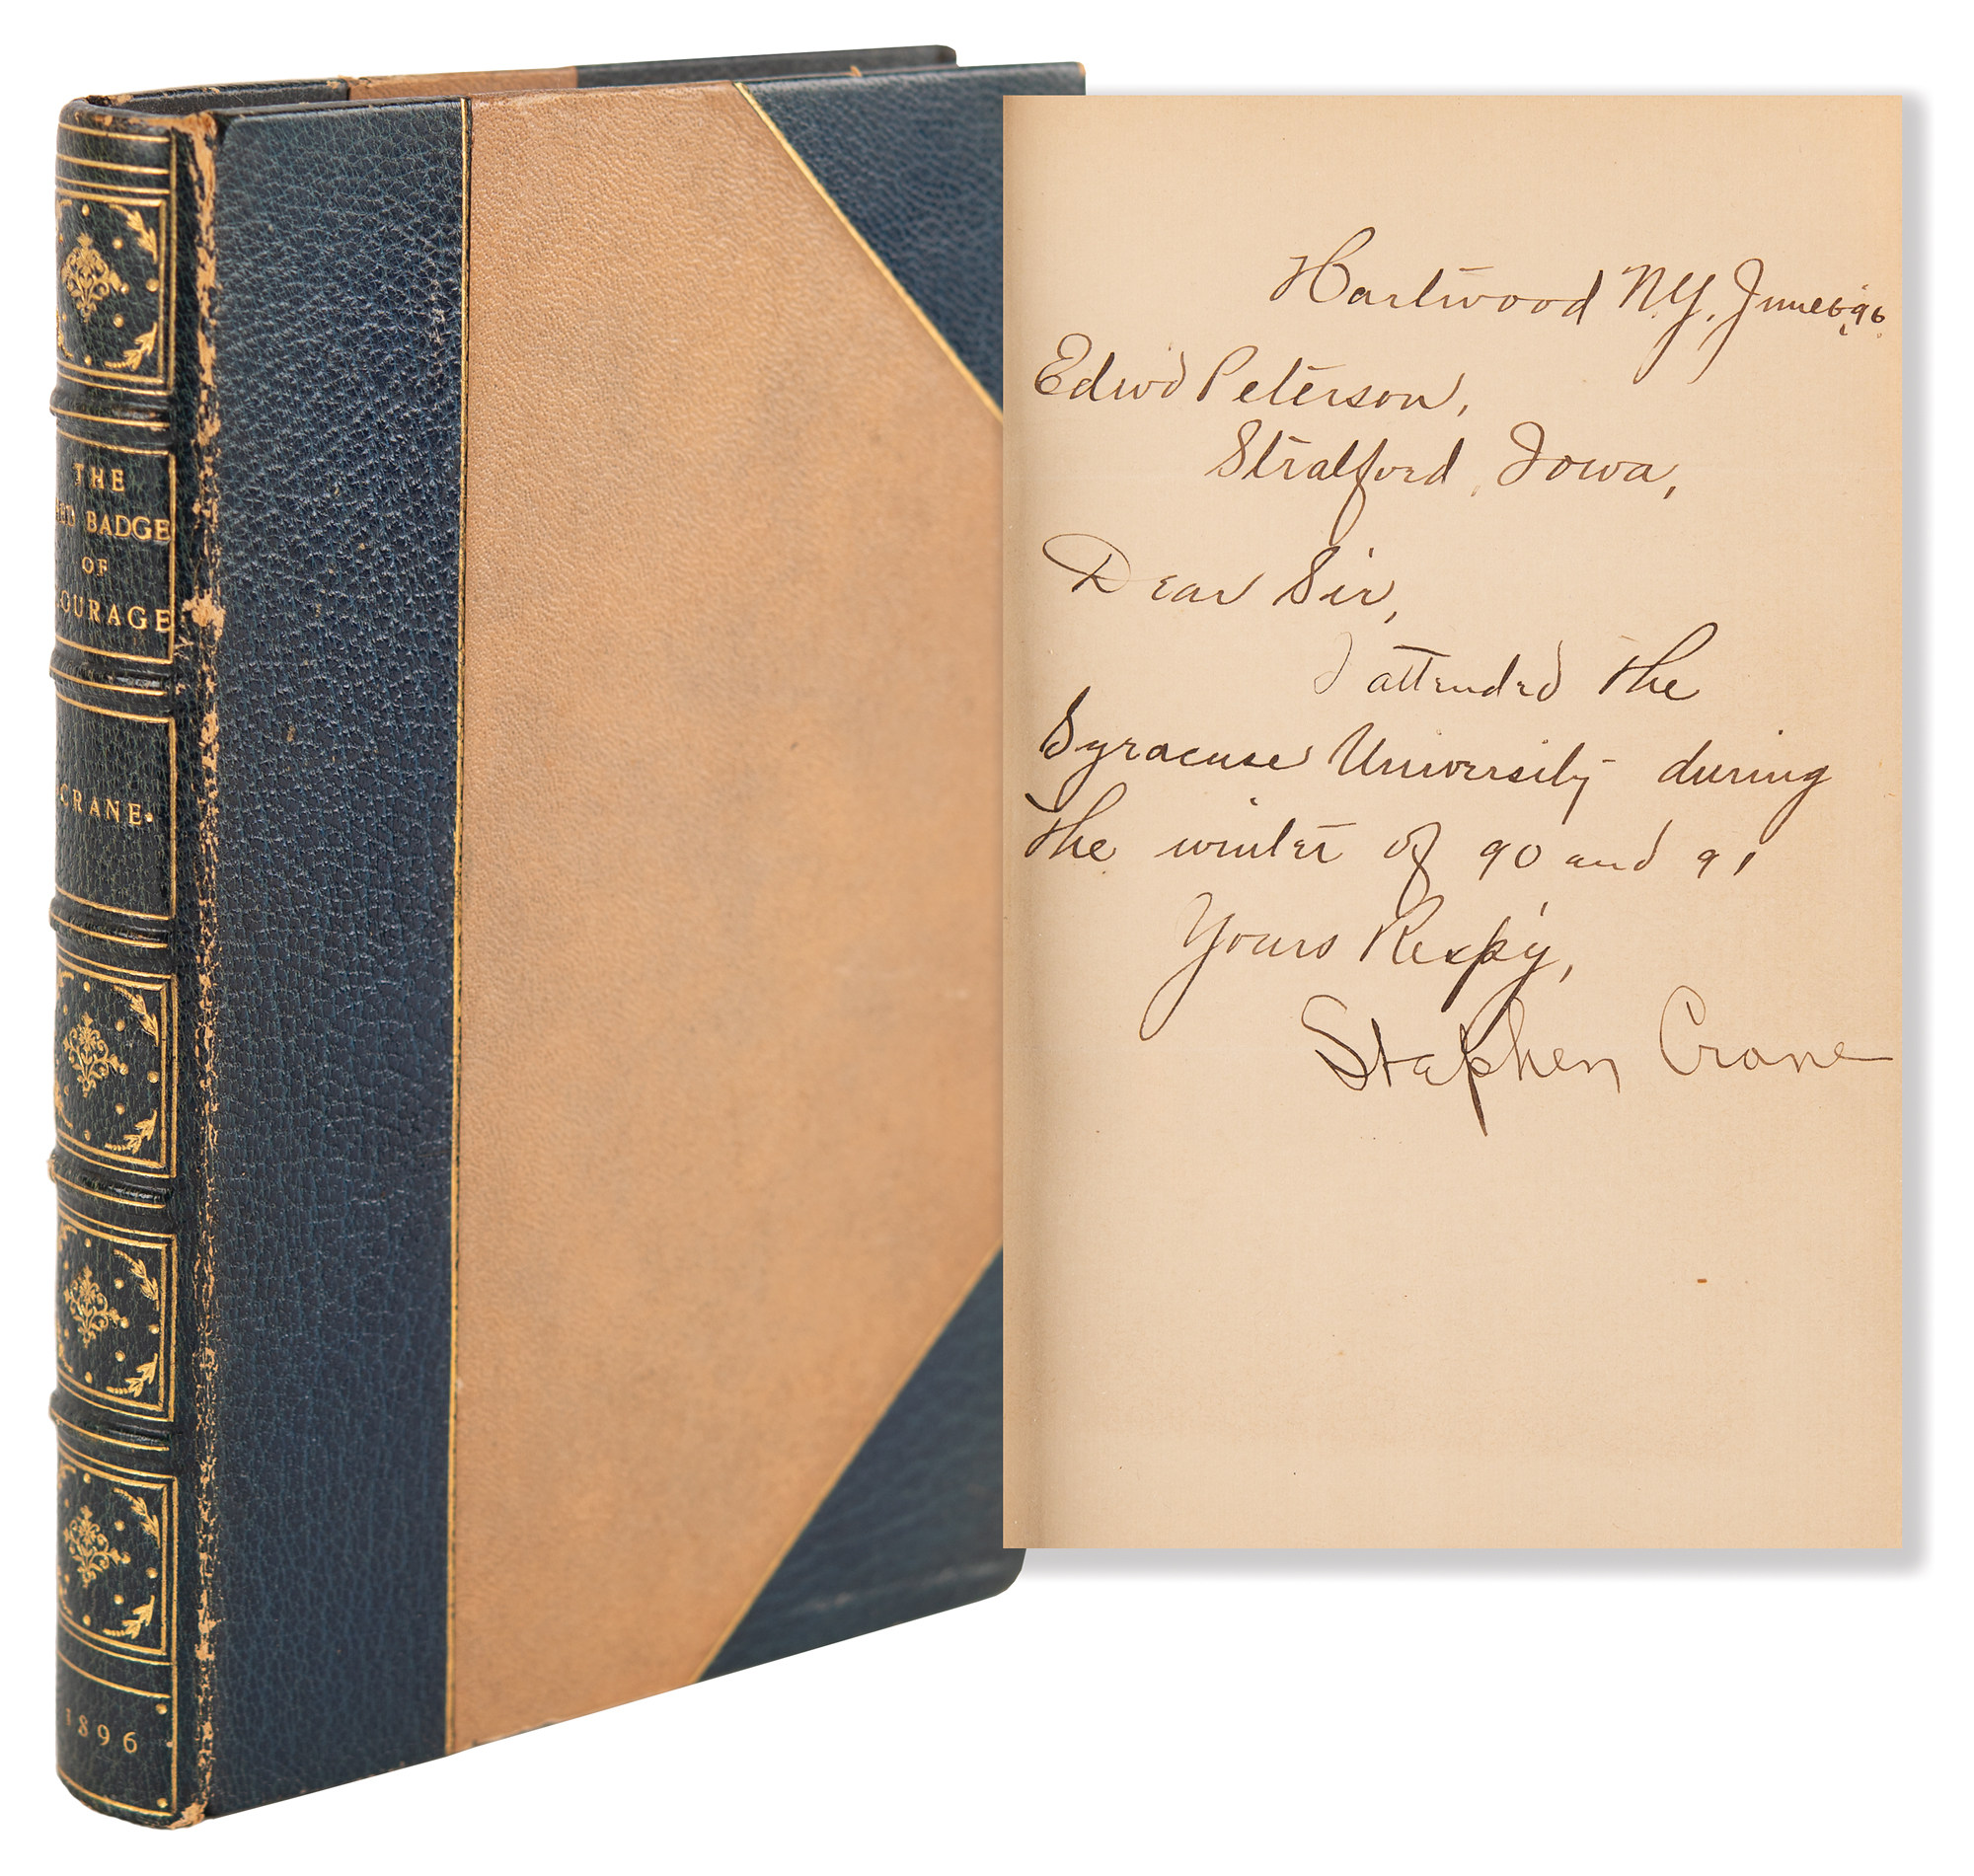 THE
RED BADGE
OF
COURAGE
CRANE
1896
Hartwood N.Y. June 6, 96.
Edwd Peterson,
Stratford, Iowa,
Dear Sir,
I attended the
Syracuse University during
the winter of 90 and 91
Yours Respy,
Stephen Crane